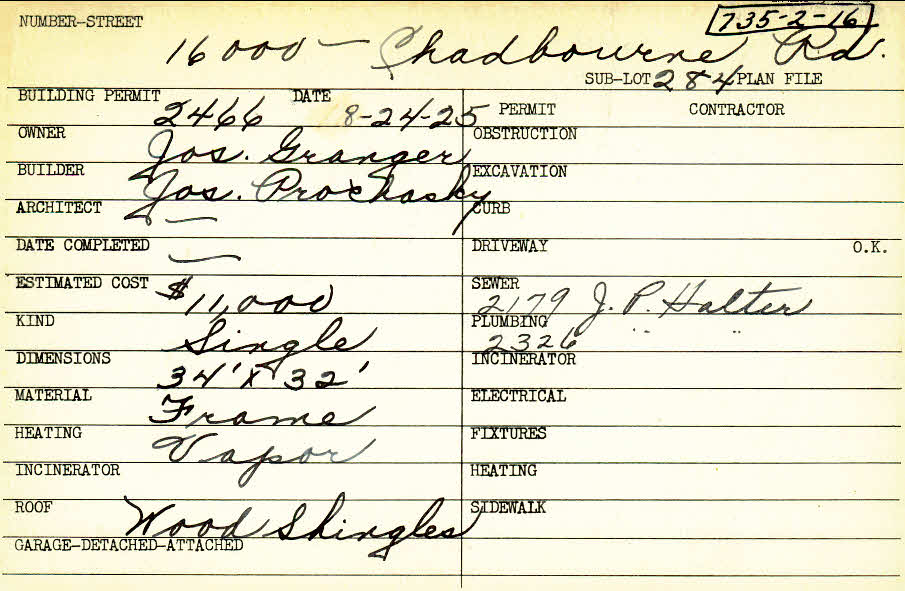 NUMBER-STREET
735-2-16
16000 — Chadbourne Rd.
SUB-LOT 284 PLAN FILE
BUILDING PERMIT 2466 DATE 8-24-25
PERMIT CONTRACTOR
OWNER Jos. Granger
OBSTRUCTION
BUILDER Jos. Prochasky
EXCAVATION
ARCHITECT —
CURB
DATE COMPLETED —
DRIVEWAY O.K.
ESTIMATED COST $11,000
SEWER 2179 J. P. Halter
KIND Single
PLUMBING 2326 " "
DIMENSIONS 34' x 32'
INCINERATOR
MATERIAL Frame
ELECTRICAL
HEATING Vapor
FIXTURES
INCINERATOR
HEATING
ROOF Wood Shingles
SIDEWALK
GARAGE-DETACHED-ATTACHED